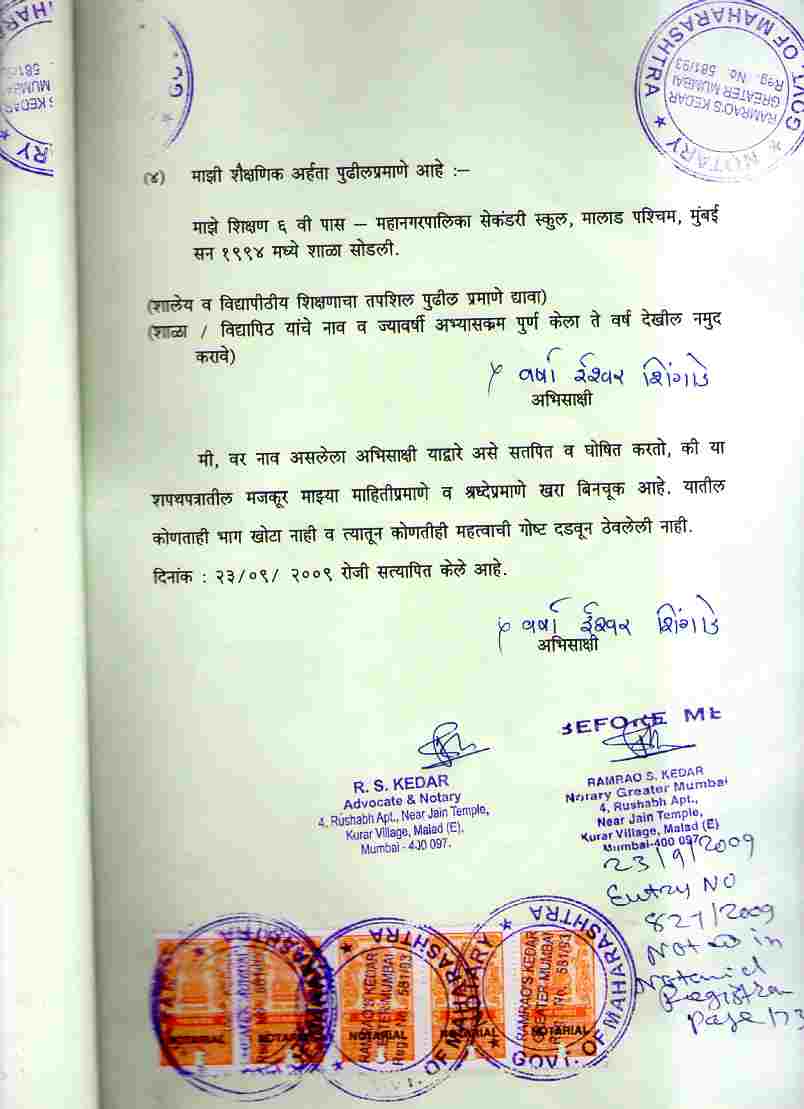 GOVT. OF MAHARASHTRA
NOTARY
RAMRAO'S KEDAR
GREATER MUMBAI
Reg. No. 581/93
(४) माझी शैक्षणिक अर्हता पुढीलप्रमाणे आहे :–
माझे शिक्षण ६ वी पास – महानगरपालिका सेकंडरी स्कुल, मालाड पश्चिम, मुंबई
सन १९९४ मध्ये शाळा सोडली.
(शालेय व विद्यापीठीय शिक्षणाचा तपशिल पुढील प्रमाणे द्यावा)
(शाळा / विद्यापिठ यांचे नाव व ज्यावर्षी अभ्यासक्रम पुर्ण केला ते वर्ष देखील नमुद
करावे)
वर्षा ईश्वर शिंगाडे
अभिसाक्षी
मी, वर नाव असलेला अभिसाक्षी याद्वारे असे सतपित व घोषित करतो, की या
शपथपत्रातील मजकूर माझ्या माहितीप्रमाणे व श्रध्देप्रमाणे खरा बिनचूक आहे. यातील
कोणताही भाग खोटा नाही व त्यातून कोणतीही महत्वाची गोष्ट दडवून ठेवलेली नाही.
दिनांक : २३/०९/ २००९ रोजी सत्यापित केले आहे.
वर्षा ईश्वर शिंगाडे
अभिसाक्षी
BEFORE ME
R. S. KEDAR
Advocate & Notary
4, Rushabh Apt., Near Jain Temple,
Kurar Village, Malad (E),
Mumbai - 400 097.
RAMRAO S. KEDAR
Notary Greater Mumbai
4, Rushabh Apt.,
Near Jain Temple,
Kurar Village, Malad (E)
Mumbai-400 097
23/9/2009
Entry No
827/2009
Noted in
Notarial
Register
page 173
NOTARIAL
NOTARIAL
NOTARIAL
NOTARIAL
NOTARIAL
RAMRAO'S KEDAR
GREATER MUMBAI
Reg. No. 581/93
NOTARY
GOVT. OF MAHARASHTRA